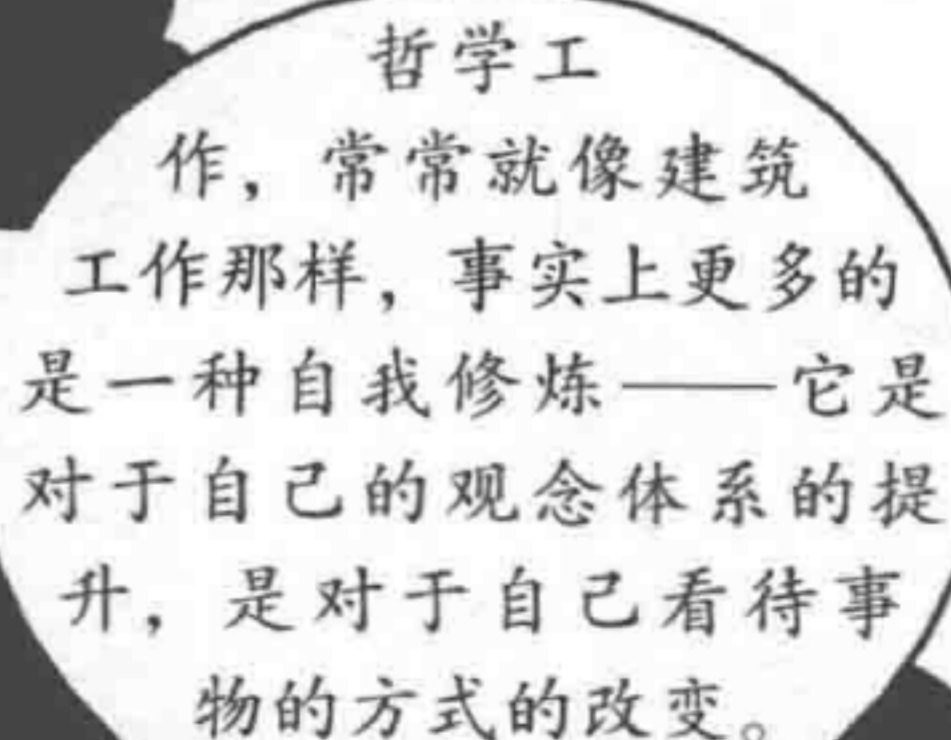 哲学工
作，常常就像建筑
工作那样，事实上更多的
是一种自我修炼——它是
对于自己的观念体系的提
升，是对于自己看待事
物的方式的改变。